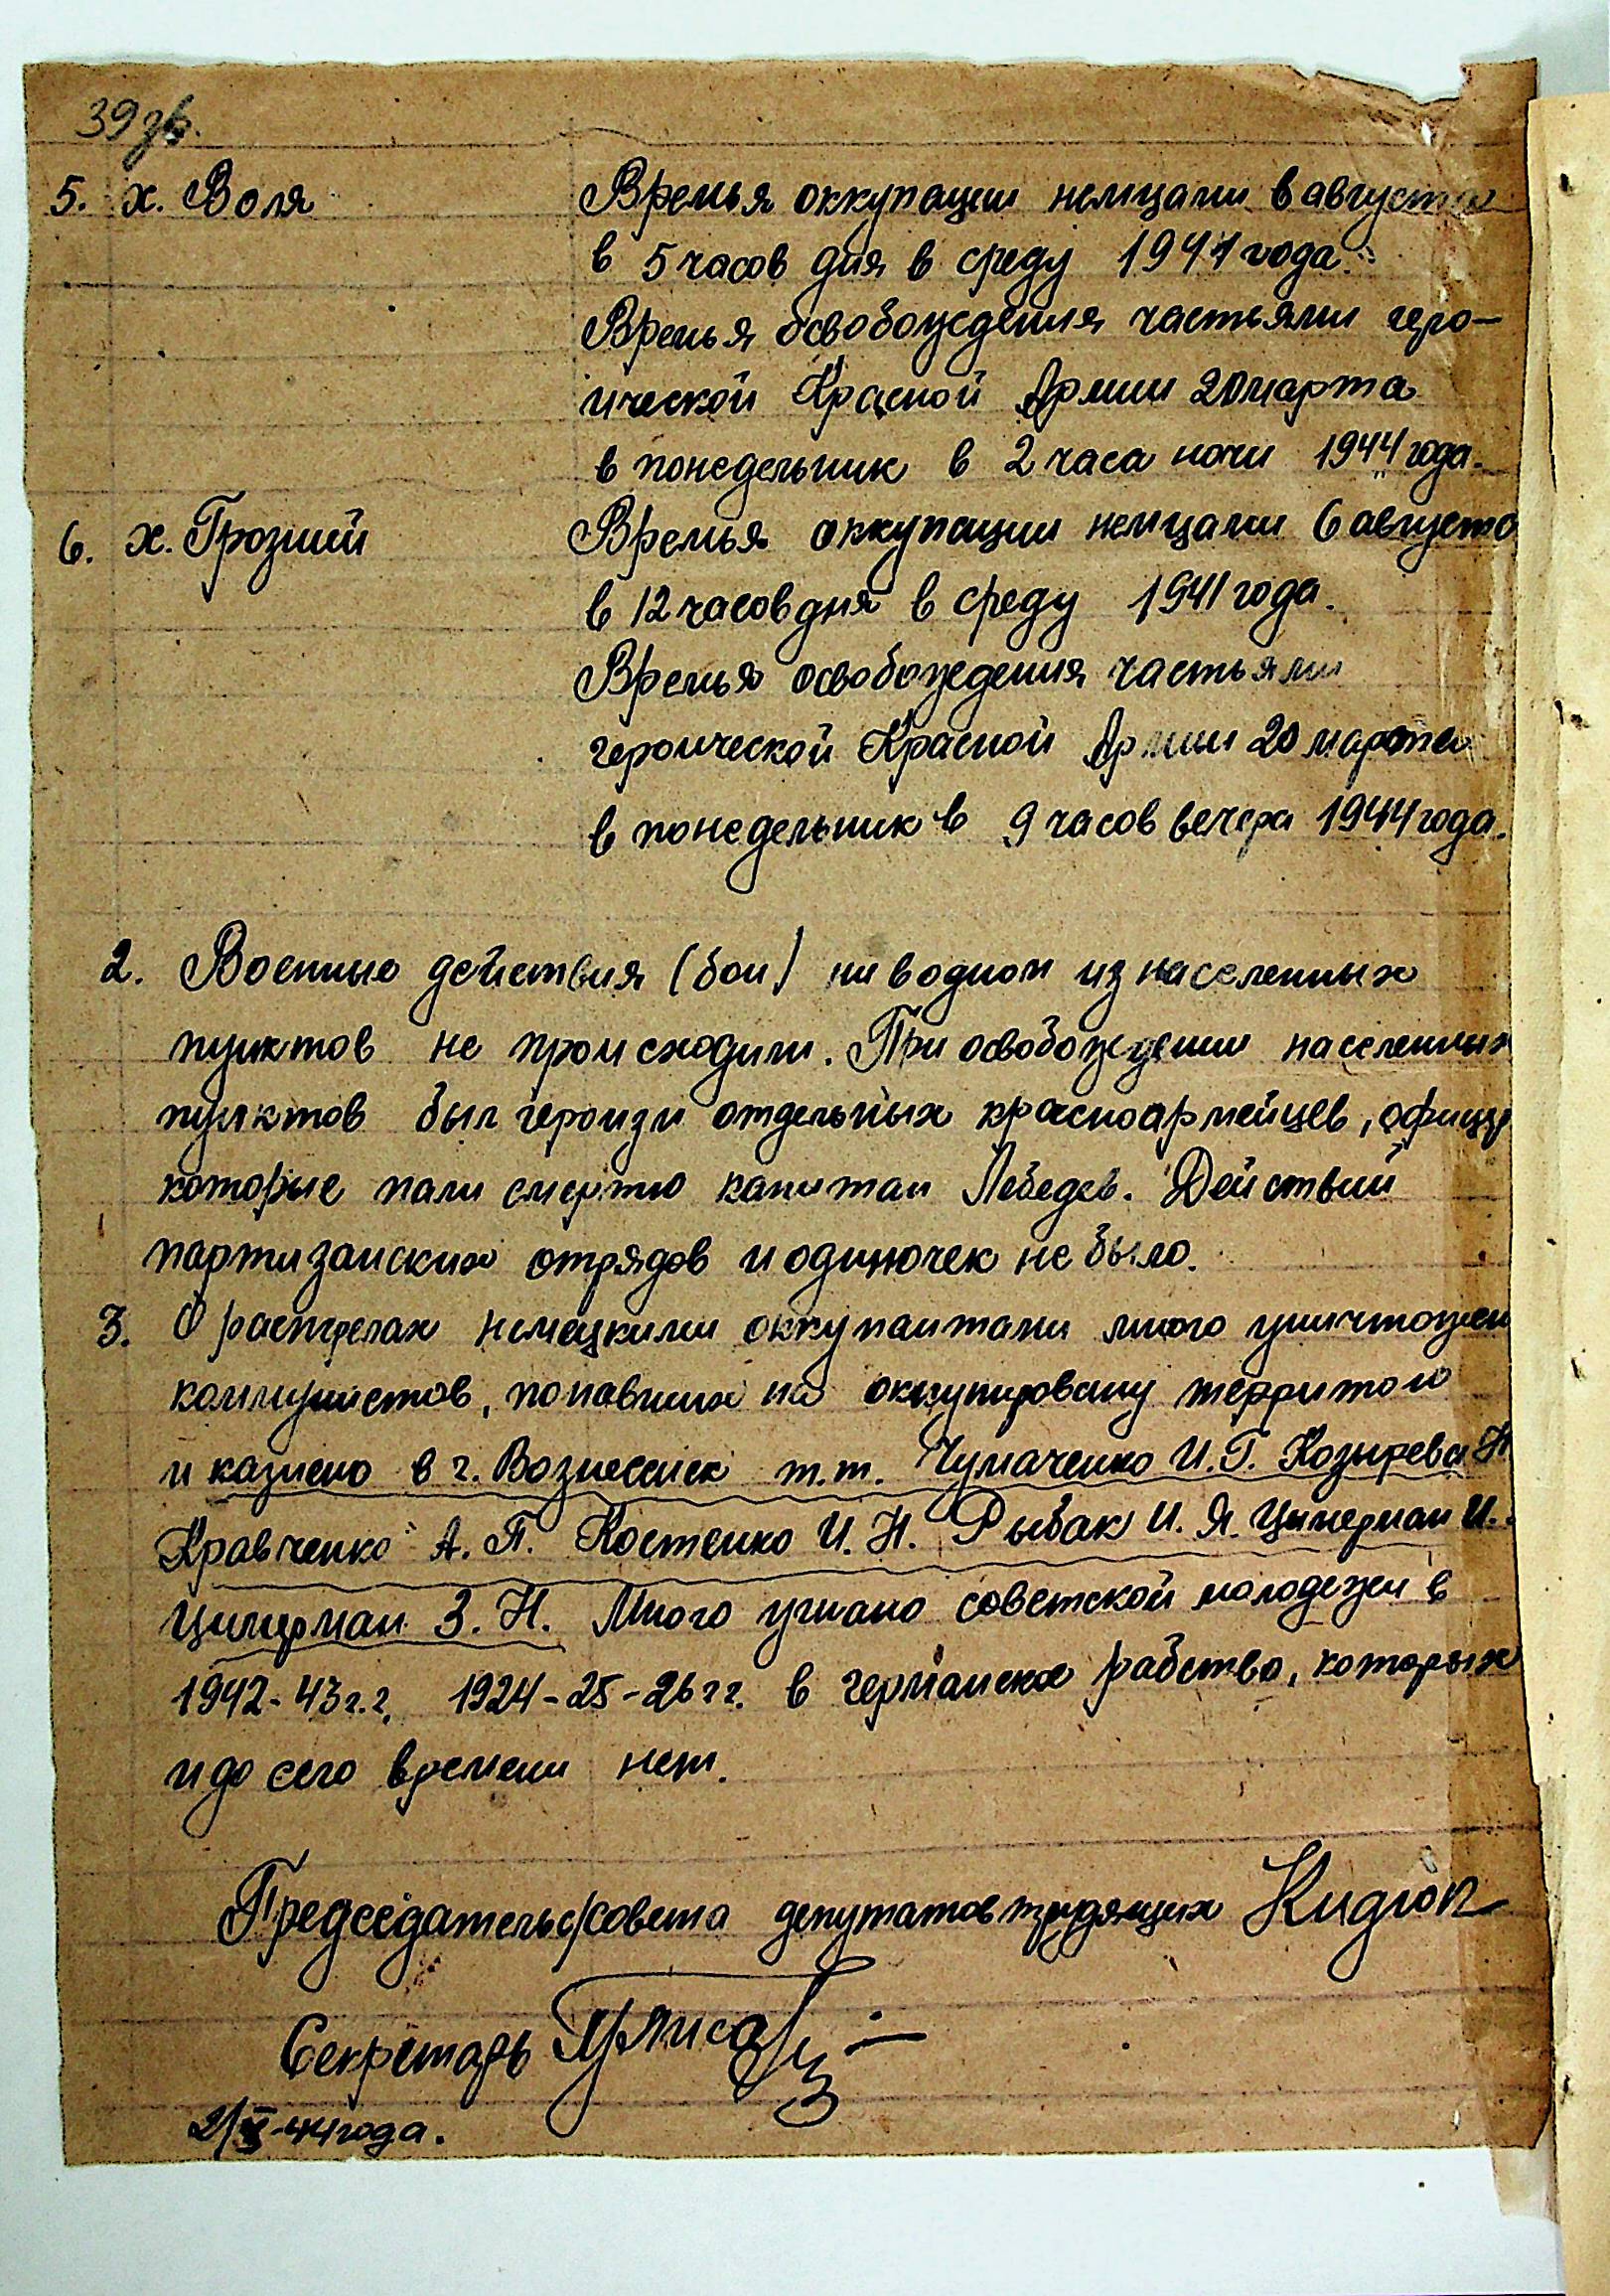 39 зв.
5. х. Воля Времья оккупации немцами 6 августа
в 5 часов дня в среду 1941 года.
Времья освобождения частьями геро-
ической Красной Армии 20 марта
в понедельник в 2 часа ночи 1944 года.
6. х. Грозний Времья оккупации немцами 6 августа
в 12 часов дня в среду 1941 года.
Времья освобождения частьями
героической Красной Армии 20 марта
в понедельник в 9 часов вечера 1944 года.
2. Военные действия (бои) ни в одном из населенных
пунктов не происходили. При освобождении населенных
пунктов был героизм отдельных красноармейцев, офице
которые пали смертю капитан Лебедев. Действий
партизанских отрядов и одиночек не было.
3. О растрелах немецкими оккупантами много уничтожен
коммунистов, попавших на оккупировану территою
и казнено в г. Вознесенск т.т. Чумаченко И. Г. Козырева Н
Кравченко А. П. Костенко И. Н. Рыбак И. Я. Цимерман И.
Цимерман З. Н. Много угнано советской молодежи в
1942-43 г.г. 1924-25-26 гг. в германское рабство, которых
и до сего времени нет.
Председатель с/совета депутатов трудящих
Секретарь
44 года.